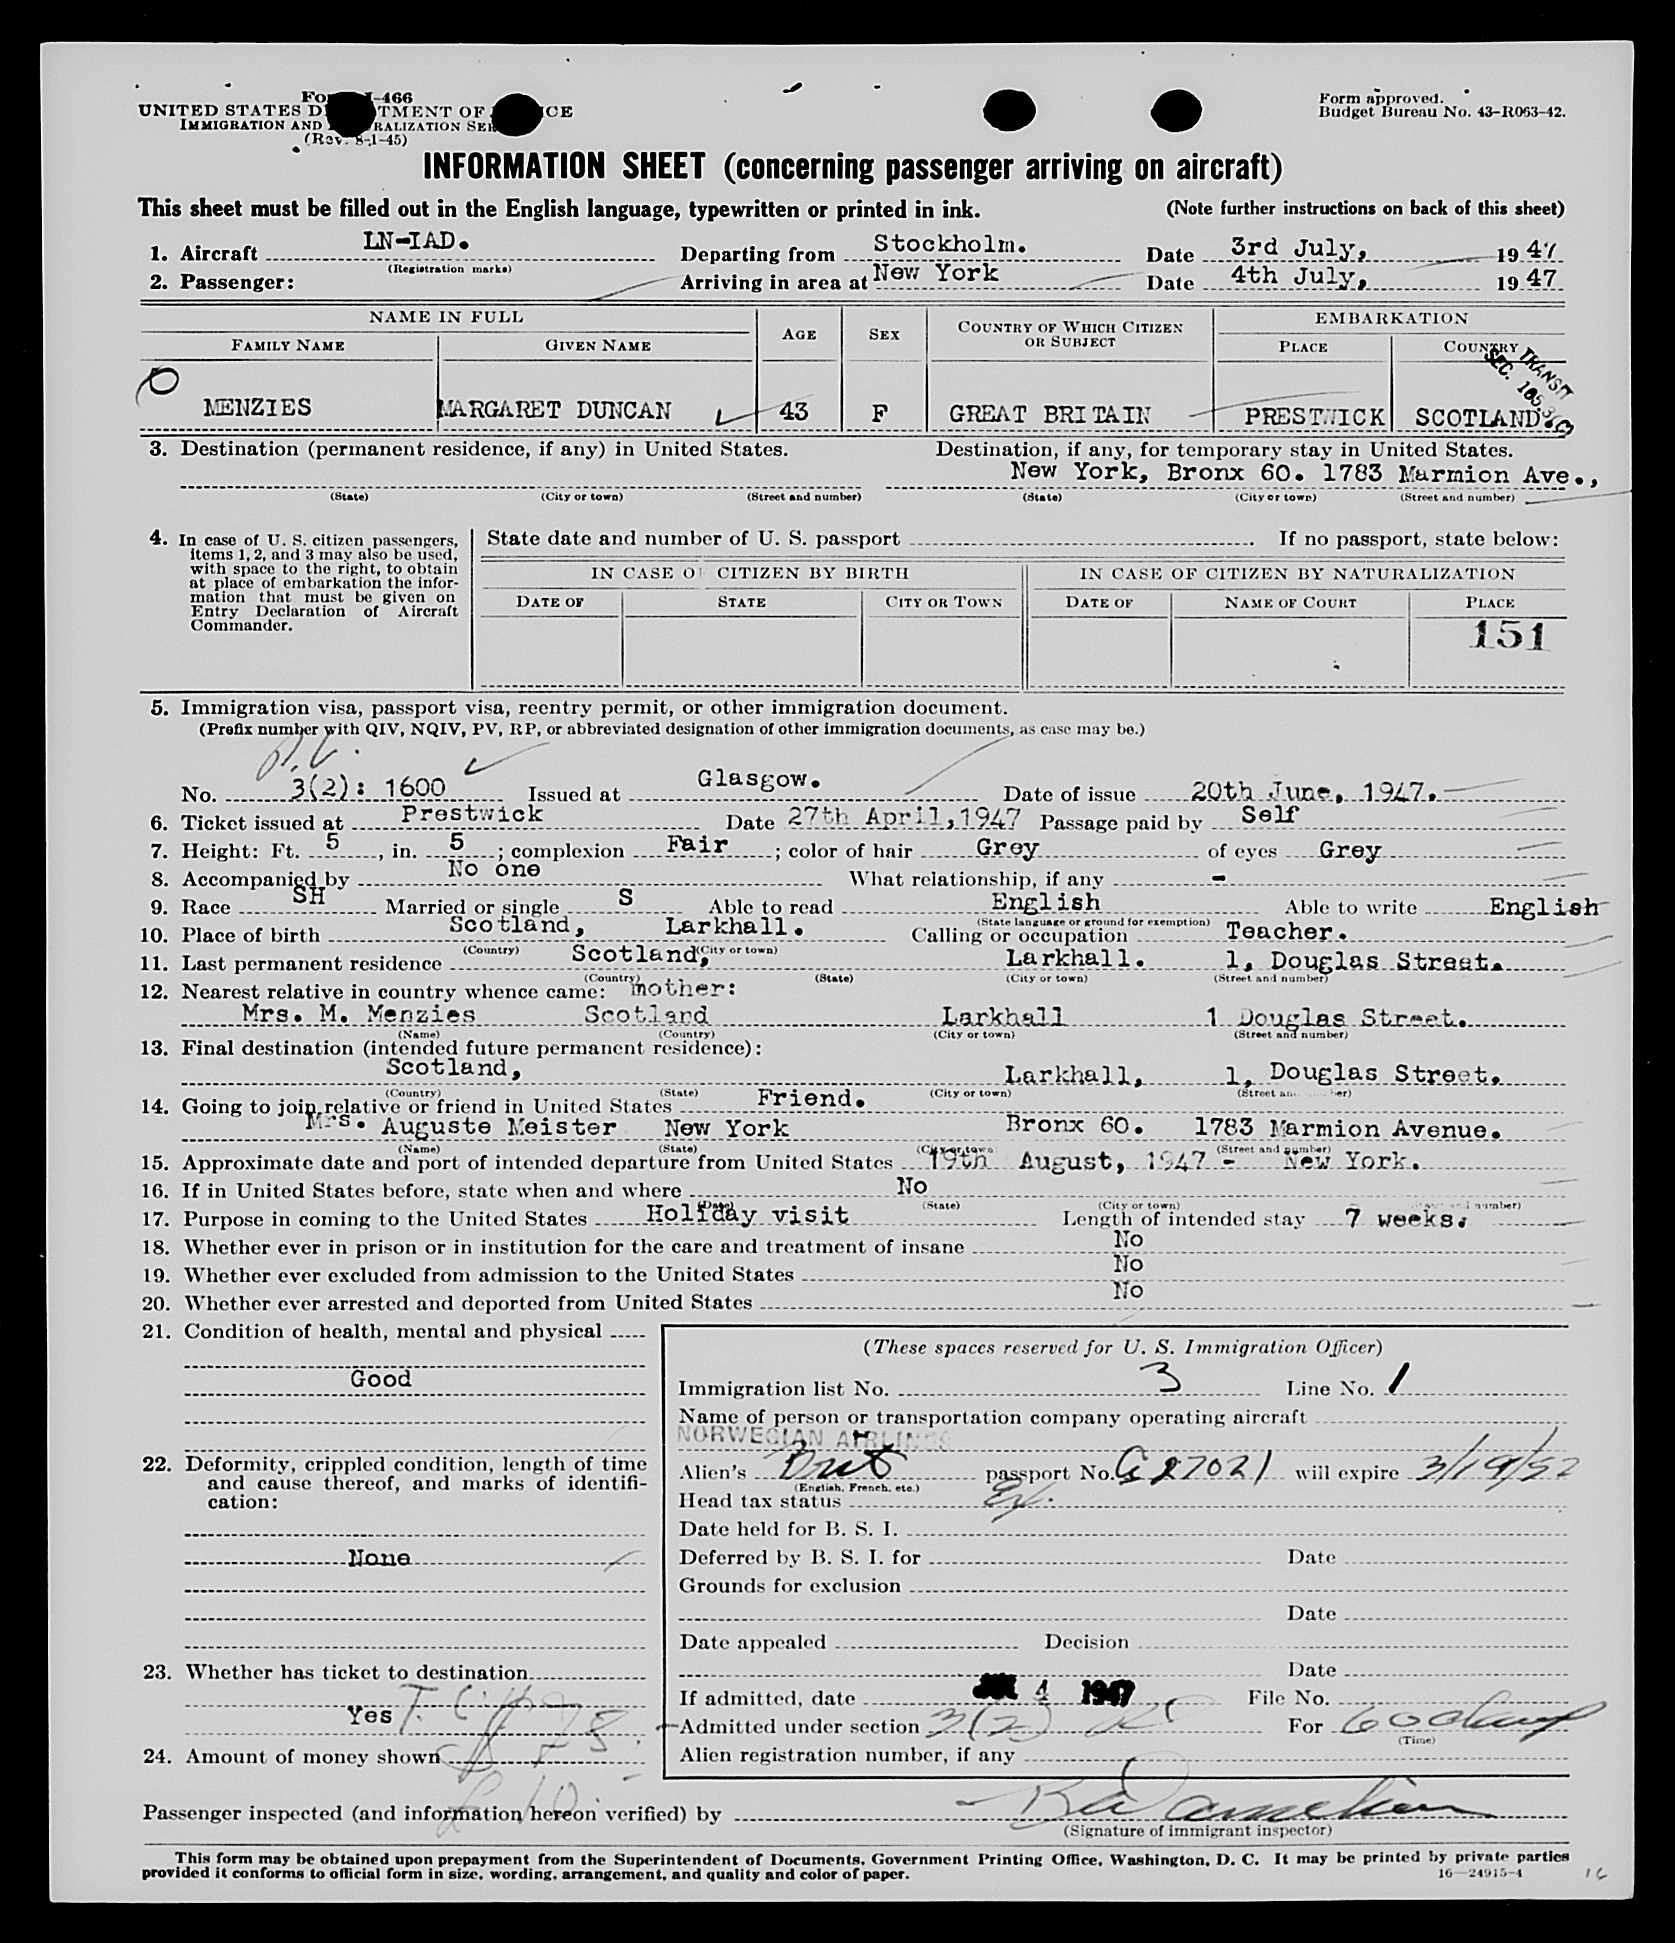 Form I-466
UNITED STATES DEPARTMENT OF JUSTICE
IMMIGRATION AND NATURALIZATION SERVICE
(Rev. 8-1-45)
Form approved.
Budget Bureau No. 43-R063-42.
INFORMATION SHEET (concerning passenger arriving on aircraft)
This sheet must be filled out in the English language, typewritten or printed in ink. (Note further instructions on back of this sheet)
1. Aircraft LN-IAD. Departing from Stockholm. Date 3rd July, 1947
(Registration marks)
2. Passenger: Arriving in area at New York Date 4th July, 1947
NAME IN FULL AGE SEX COUNTRY OF WHICH CITIZEN OR SUBJECT EMBARKATION
FAMILY NAME GIVEN NAME PLACE COUNTRY
TRANSIT
SEC.
MENZIES MARGARET DUNCAN 43 F GREAT BRITAIN PRESTWICK SCOTLAND.
3. Destination (permanent residence, if any) in United States. Destination, if any, for temporary stay in United States.
New York, Bronx 60. 1783 Marmion Ave.,
(State) (City or town) (Street and number) (State) (City or town) (Street and number)
4. In case of U. S. citizen passengers, items 1, 2, and 3 may also be used, with space to the right, to obtain at place of embarkation the information that must be given on Entry Declaration of Aircraft Commander.
State date and number of U. S. passport If no passport, state below:
IN CASE OF CITIZEN BY BIRTH IN CASE OF CITIZEN BY NATURALIZATION
DATE OF STATE CITY OR TOWN DATE OF NAME OF COURT PLACE
151
5. Immigration visa, passport visa, reentry permit, or other immigration document.
(Prefix number with QIV, NQIV, PV, RP, or abbreviated designation of other immigration documents, as case may be.)
No. 3(2): 1600 Issued at Glasgow. Date of issue 20th June, 1947.
6. Ticket issued at Prestwick Date 27th April, 1947 Passage paid by Self
7. Height: Ft. 5, in. 5; complexion Fair; color of hair Grey of eyes Grey
8. Accompanied by No one What relationship, if any -
9. Race SH Married or single S Able to read English Able to write English
(State language or ground for exemption)
10. Place of birth Scotland, Larkhall. Calling or occupation Teacher.
(Country) (City or town)
11. Last permanent residence Scotland, Larkhall. 1, Douglas Street.
(Country) (State) (City or town) (Street and number)
12. Nearest relative in country whence came: mother:
Mrs. M. Menzies Scotland Larkhall 1 Douglas Street.
(Name) (Country) (City or town) (Street and number)
13. Final destination (intended future permanent residence):
Scotland, Larkhall, 1, Douglas Street.
(Country) (State) (City or town) (Street and number)
14. Going to join relative or friend in United States Friend.
Mrs. Auguste Meister New York Bronx 60. 1783 Marmion Avenue.
(Name) (State) (City or town) (Street and number)
15. Approximate date and port of intended departure from United States 19th August, 1947 - New York.
16. If in United States before, state when and where No
(Date) (State) (City or town) (Street and number)
17. Purpose in coming to the United States Holiday visit Length of intended stay 7 weeks.
18. Whether ever in prison or in institution for the care and treatment of insane No
19. Whether ever excluded from admission to the United States No
20. Whether ever arrested and deported from United States No
21. Condition of health, mental and physical
Good
22. Deformity, crippled condition, length of time and cause thereof, and marks of identification:
None
23. Whether has ticket to destination
Yes
24. Amount of money shown
(These spaces reserved for U. S. Immigration Officer)
Immigration list No. 3 Line No. 1
Name of person or transportation company operating aircraft
NORWEGIAN AIRLINES
Alien's Brit passport No. will expire 3/19/52
(English, French, etc.)
Head tax status Ex.
Date held for B. S. I.
Deferred by B. S. I. for Date
Grounds for exclusion
Date
Date appealed Decision
Date
If admitted, date JUL 4 1947 File No.
Admitted under section 3(2) For 60 days
(Time)
Alien registration number, if any
Passenger inspected (and information hereon verified) by
(Signature of immigrant inspector)
This form may be obtained upon prepayment from the Superintendent of Documents, Government Printing Office, Washington, D. C. It may be printed by private parties
provided it conforms to official form in size, wording, arrangement, and quality and color of paper.
16—24915-4
16